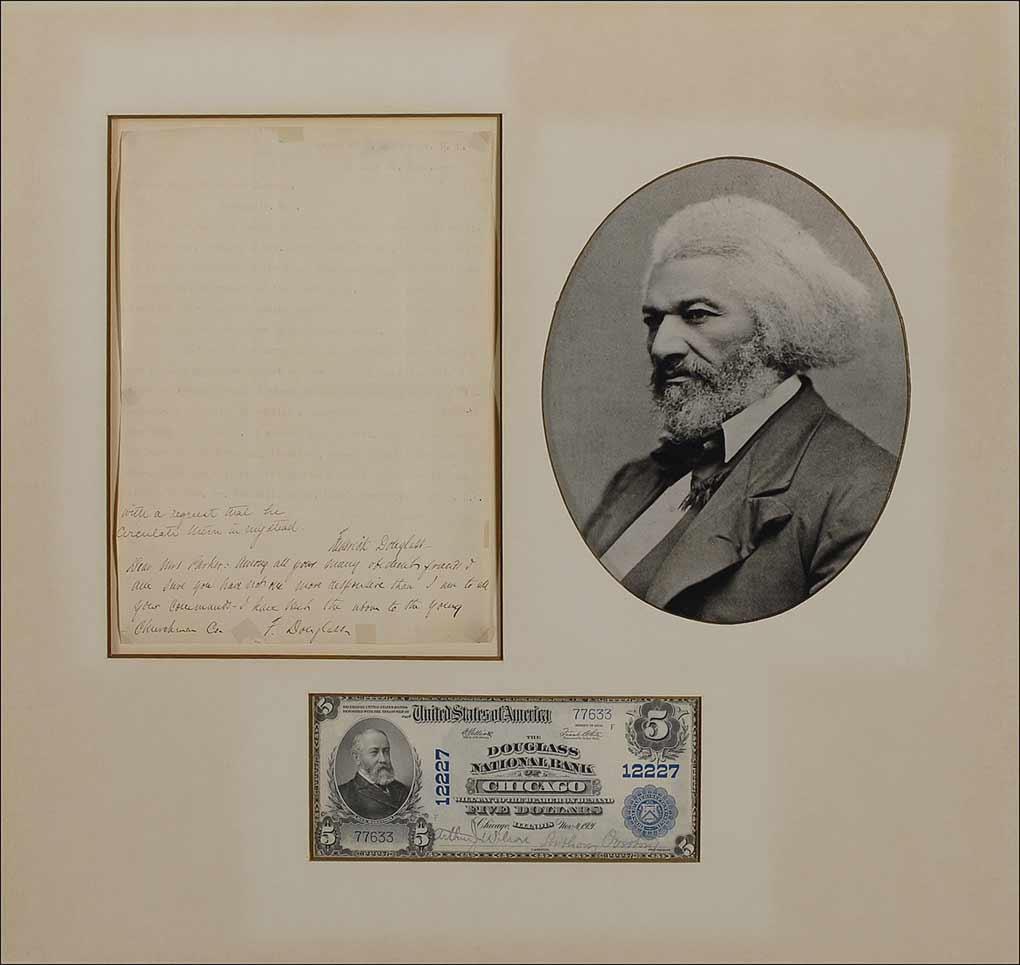 with a request that he
Circulate them in my stead.
Frederick Douglass
Dear Mrs Parker: Among all your many obedient friends I
am sure you have not one more responsive than I am to all
your commands - I have sent the above to the young
Churchman Co. F. Douglass
United States of America
77633
THE
DOUGLASS
NATIONAL BANK
OF
CHICAGO
WILL PAY TO THE BEARER ON DEMAND
FIVE DOLLARS
Chicago, ILLINOIS Nov. 1921
12227
12227
5
5
5
77633
Arthur J. Wilson
Anthony Overton